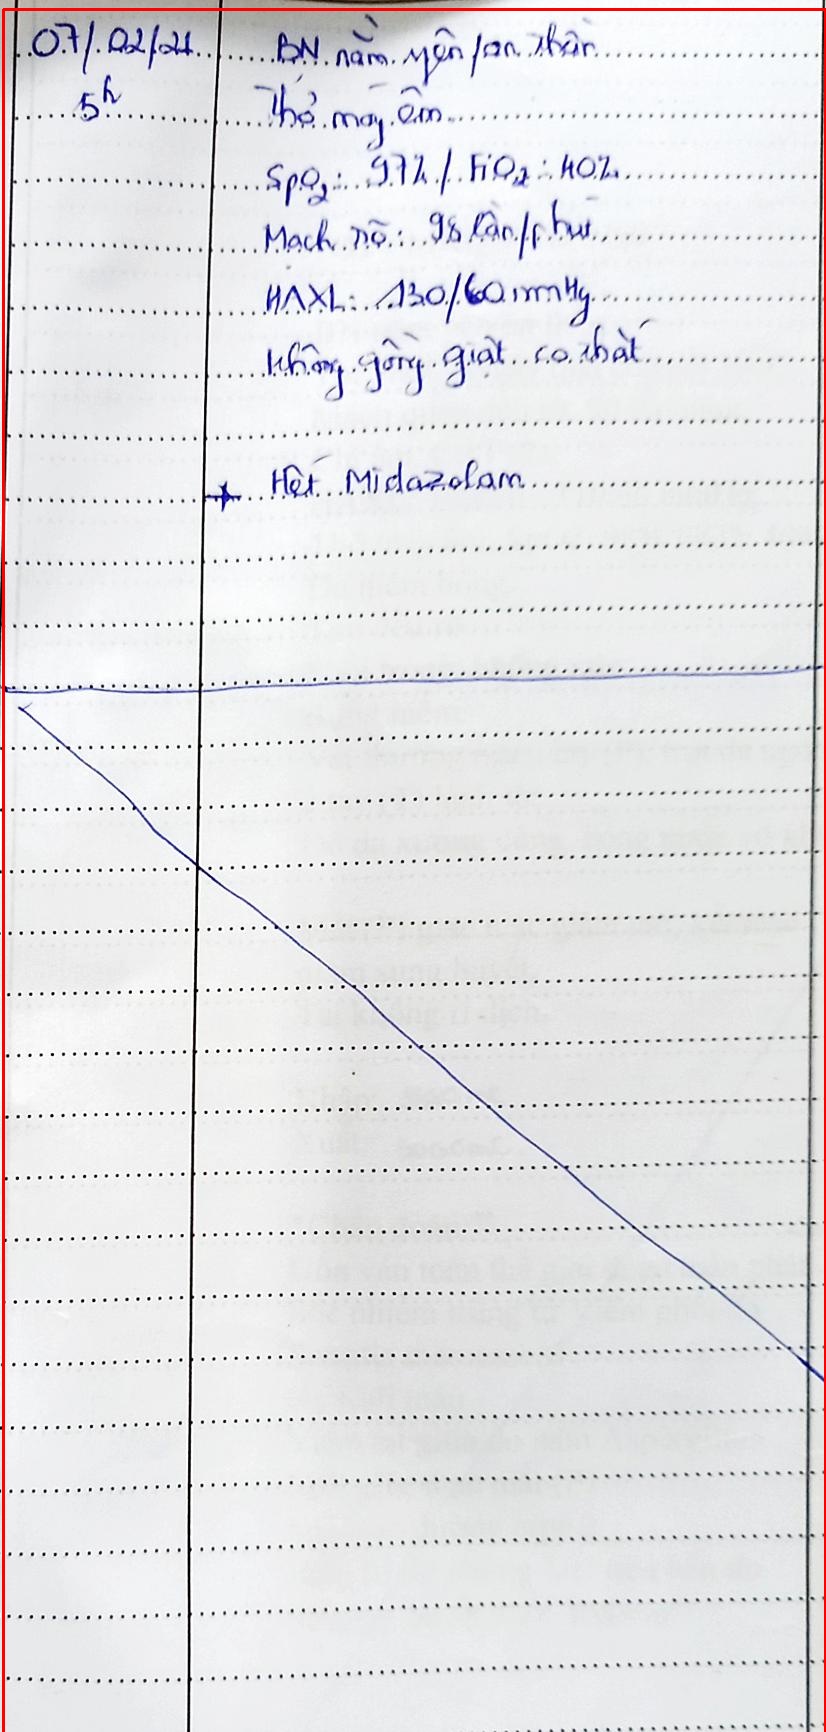 07/02/21 BN nằm yên/an thần
5h Thở máy êm
SpO2: 97% / FiO2: 40%
Mạch rõ: 98 lần/phút
HAXL: 130/60 mmHg
Không gồng giật co thắt
+ Hết Midazolam